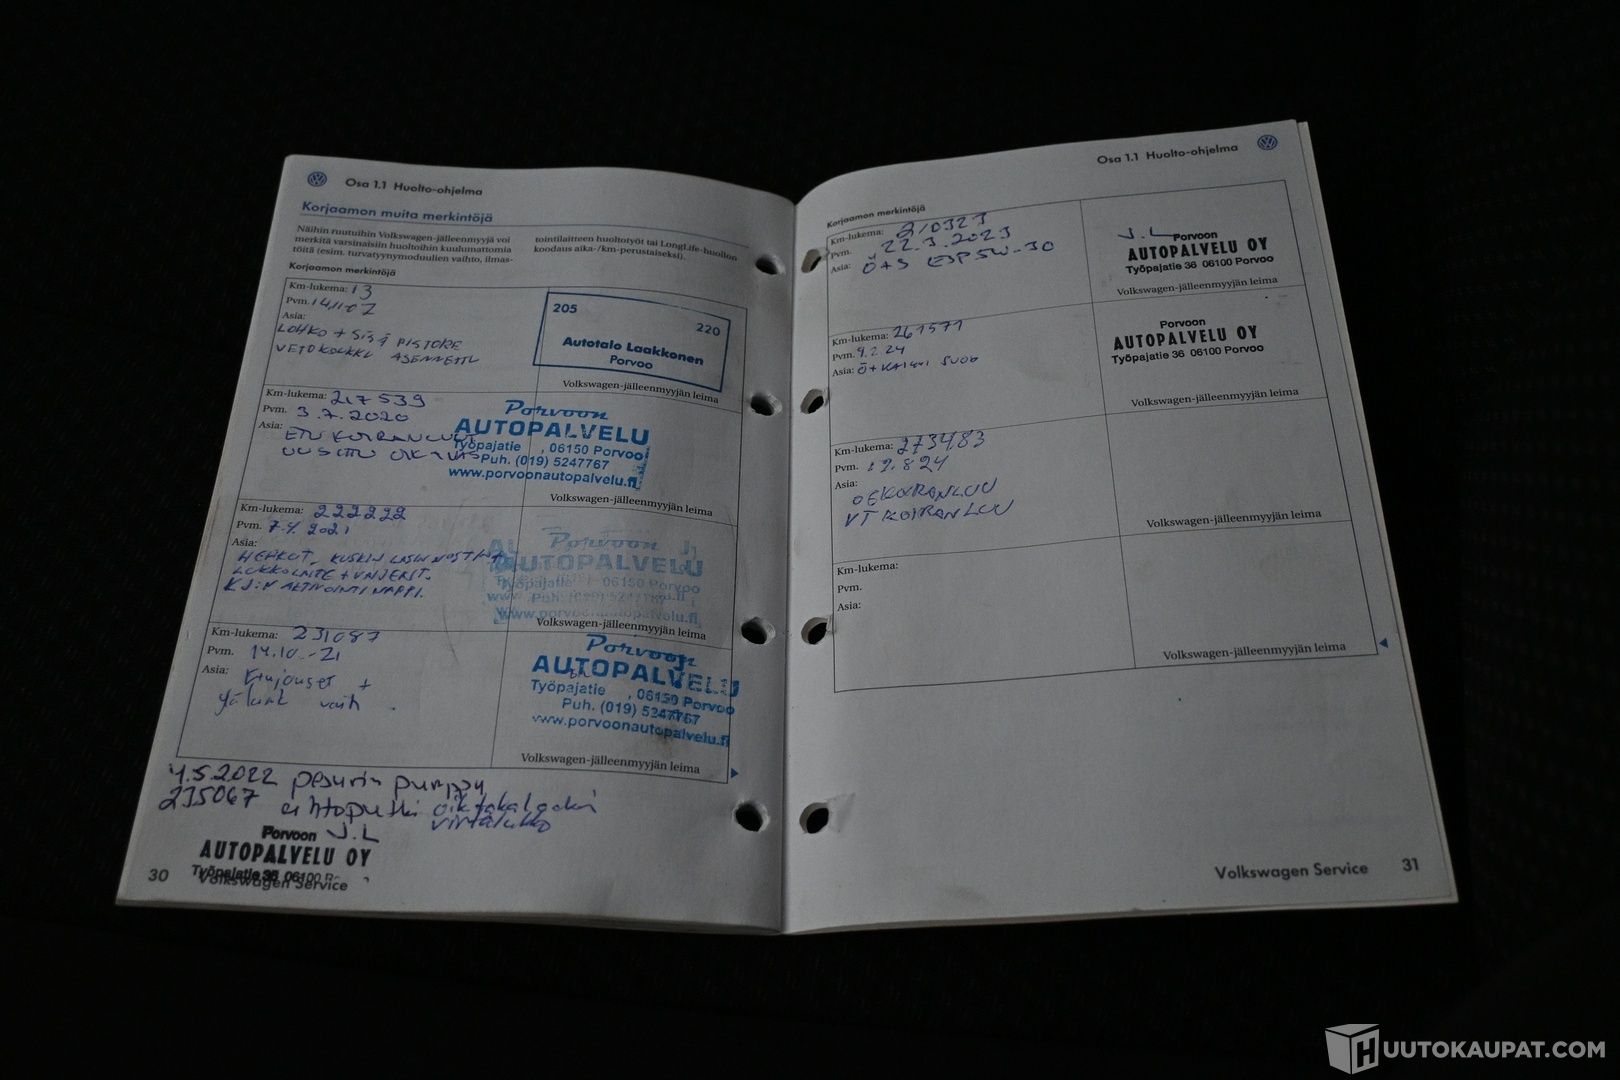 Osa 1.1 Huolto-ohjelma
Korjaamon muita merkintöjä
Näihin ruutuihin Volkswagen-jälleenmyyjä voi
merkitä varsinaisiin huoltoihin kuulumattomia
töitä (esim. turvatyynymoduulien vaihto, ilmas-
tointilaitteen huoltotyöt tai LongLife-huollon
koodaus aika-/km-perustaiseksi).
Korjaamon merkintöjä
Km-lukema: 13
Pvm. 14.11.07
Asia:
LOHKO + SISÄ PISTOKE
VETOKOUKKU ASENNETTU
205
220
Autotalo Laakkonen
Porvoo
Volkswagen-jälleenmyyjän leima
Km-lukema: 217539
Pvm. 3.7.2020
Asia: ETU KOIRANLUUT
UUSITTU
Porvoon
AUTOPALVELU
Työpajatie , 06150 Porvoo
Puh. (019) 5247767
www.porvoonautopalvelu.fi
Volkswagen-jälleenmyyjän leima
Km-lukema: 222222
Pvm. 2021
Asia:
KUSKIN
LUKKOLAITE +
AKTIVOINTI NAPPI.
Porvoon
AUTOPALVELU
Työpajatie 06150 Porvoo
www.porvoonautopalvelu.fi
Volkswagen-jälleenmyyjän leima
Km-lukema: 231087
Pvm. 14.10.-21
Asia:
+
vaih
Porvoon
AUTOPALVELU
Työpajatie , 06150 Porvoo
Puh. (019) 5247767
www.porvoonautopalvelu.fi
Volkswagen-jälleenmyyjän leima
4.5.2022 pesurin pumppu
235067
virtalukko
J.L
Porvoon
AUTOPALVELU OY
Työpajatie 36 06100
30 Volkswagen Service
Osa 1.1 Huolto-ohjelma
Korjaamon merkintöjä
Km-lukema: 210323
Pvm. 22.3.2023
Asia: Ö+S 5W-30
J.L
Porvoon
AUTOPALVELU OY
Työpajatie 36 06100 Porvoo
Volkswagen-jälleenmyyjän leima
Km-lukema: 261571
Pvm. 9.2.24
Asia: Ö+KAIKKI SUOD
Porvoon
AUTOPALVELU OY
Työpajatie 36 06100 Porvoo
Volkswagen-jälleenmyyjän leima
Km-lukema: 273483
Pvm. 19.8.24
Asia:
OE KOIRANLUU
VT KOIRANLUU
Volkswagen-jälleenmyyjän leima
Km-lukema:
Pvm.
Asia:
Volkswagen-jälleenmyyjän leima
Volkswagen Service 31
HUUTOKAUPAT.COM